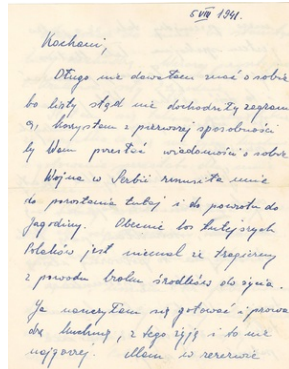 5 VIII 1941.
Kochani,
Długo nie dawałam znać o sobie
bo listy stąd nie dochodziły zagrani
cę, korzystam z pierwszej sposobności
by Wam przesłać wiadomości o sobie
Wojna w Serbii zmusiła mnie
do pozostania tutaj i do powrotu do
Jagodiny. Obecnie los tutejszych
Polaków jest niemal że tragiczny
z powodu braku środków do życia.
Ja nauczyłam się gotować i prowa
dzę kuchnię, z tego żyję i to nie
najgorzej. Mam w rezerwie